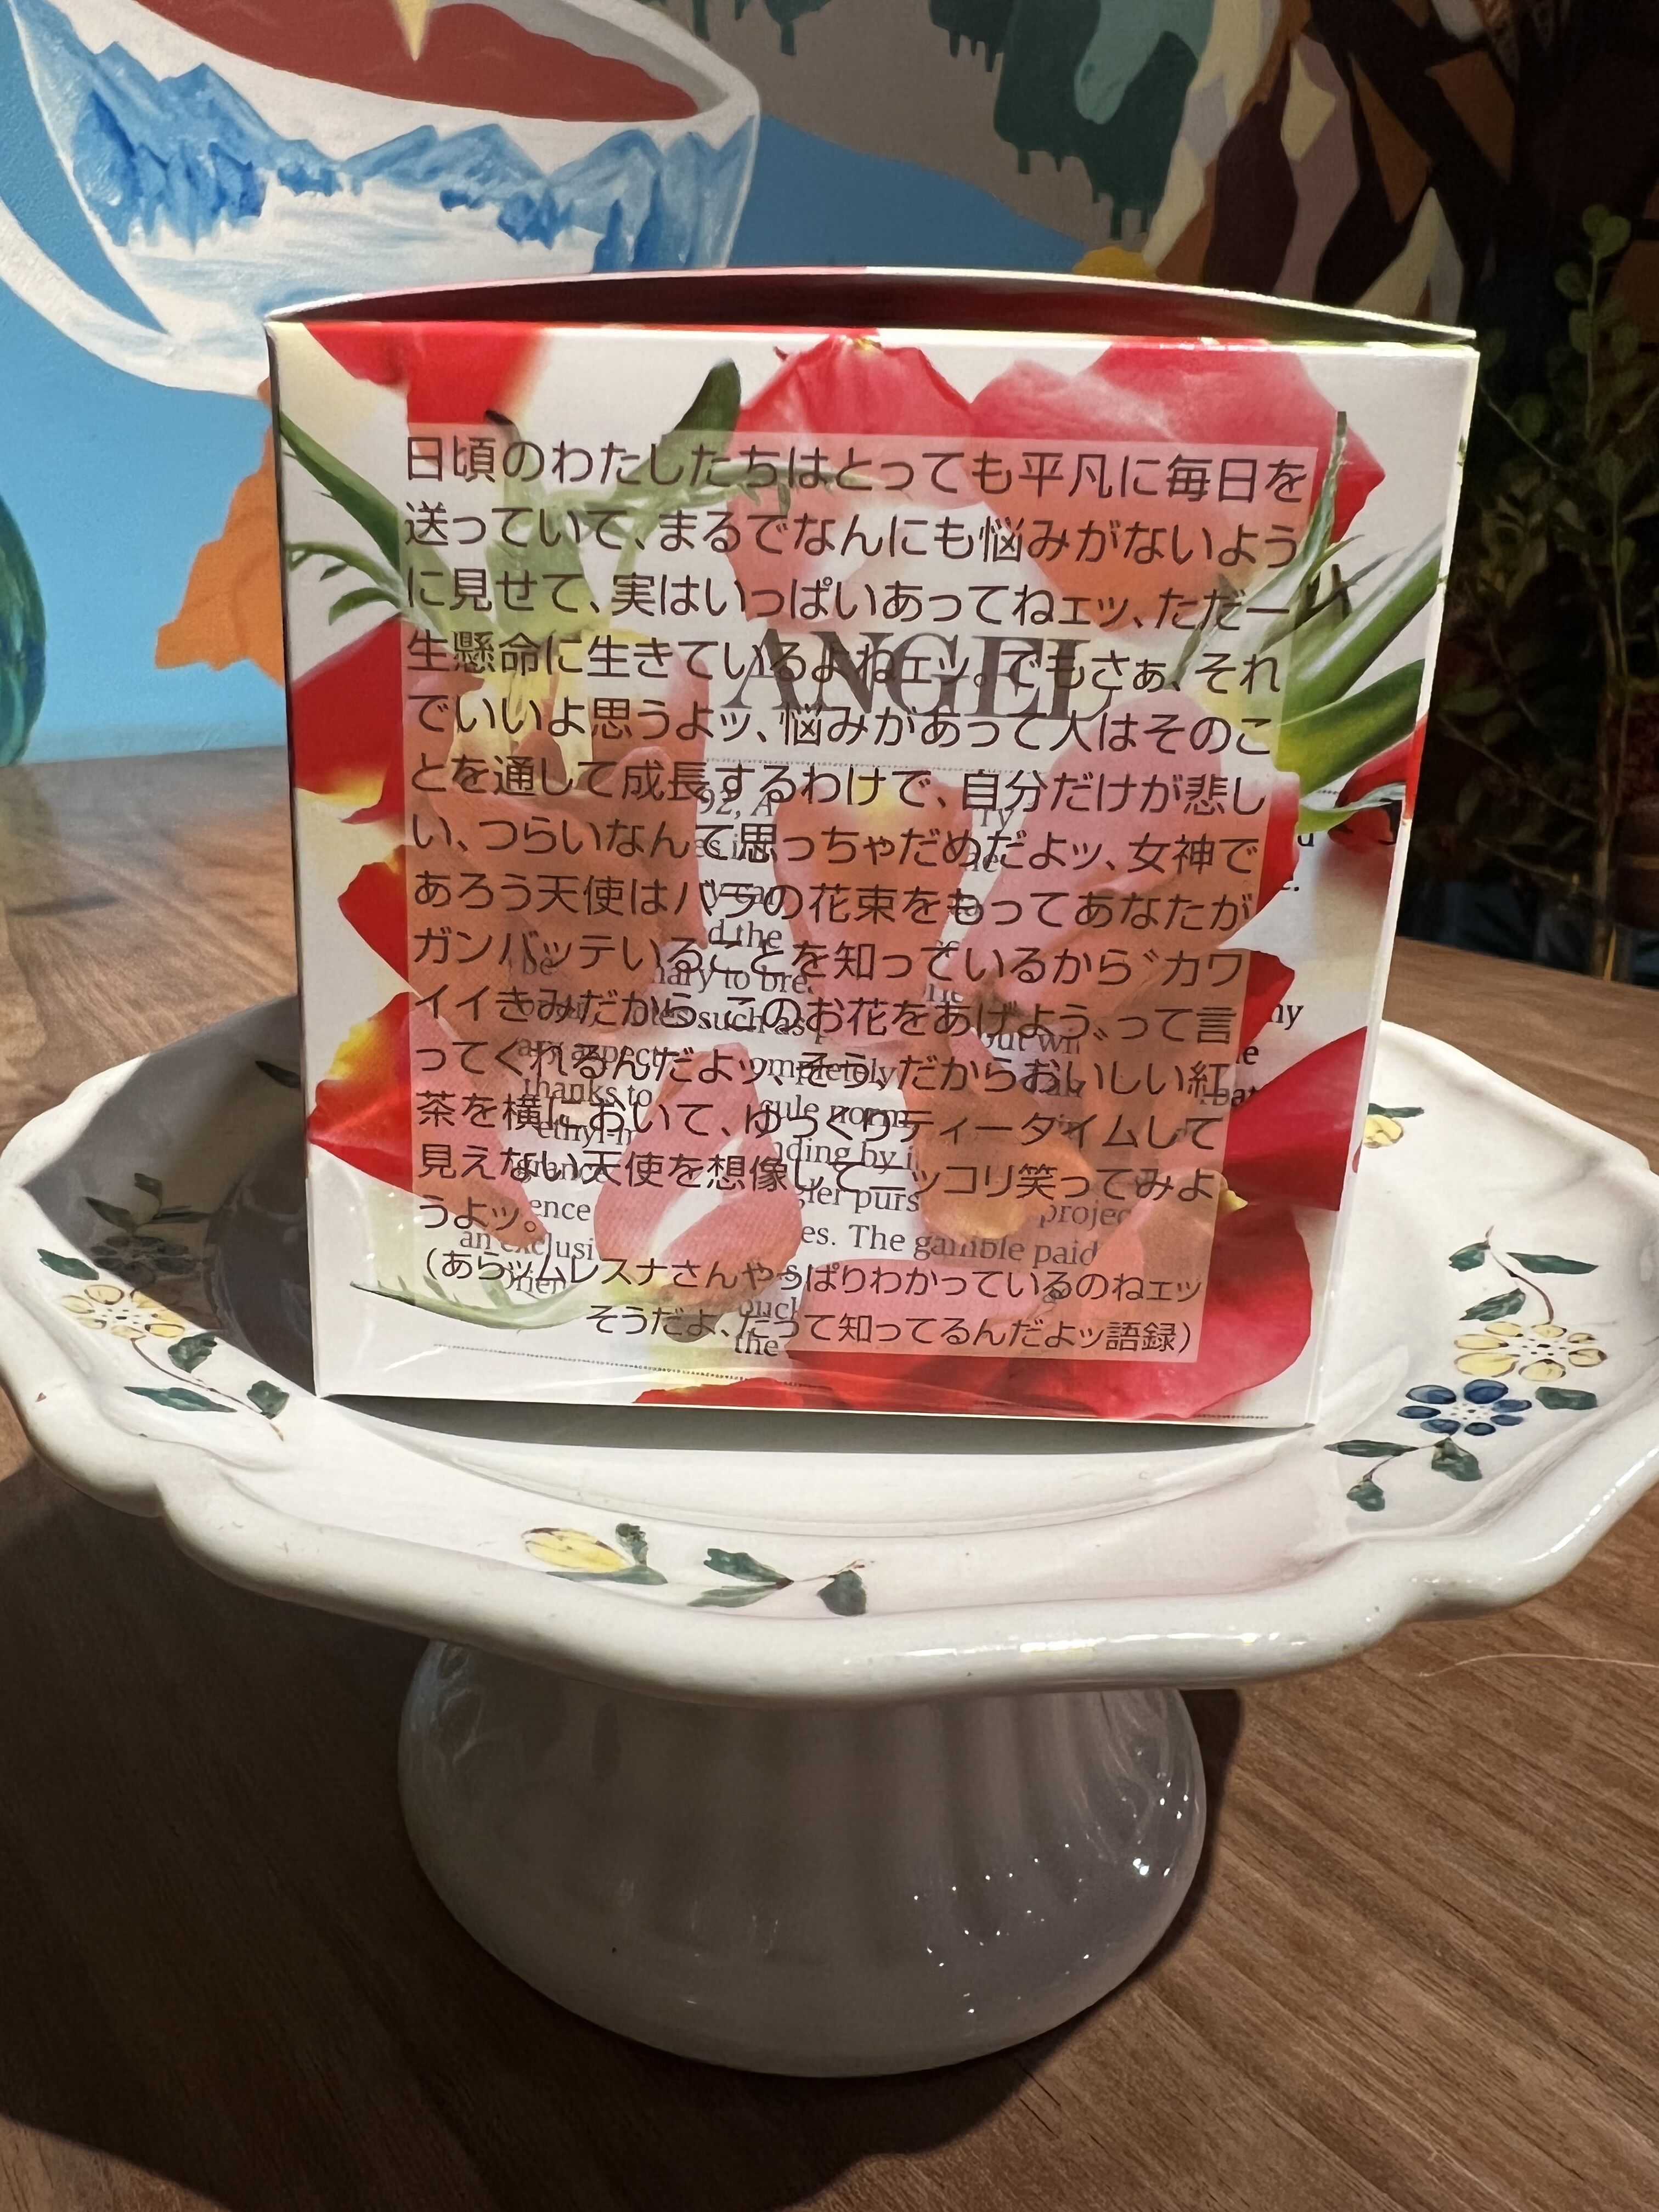 日頃のわたしたちはとっても平凡に毎日を
送っていて、まるでなんにも悩みがないよう
に見せて、実はいっぱいあってねェッ、ただ一
生懸命に生きているよねェッ。でもさぁ、それ
でいいよ思うよッ、悩みがあって人はそのこ
とを通して成長するわけで、自分だけが悲し
い、つらいなんて思っちゃだめだよッ、女神で
あろう天使はバラの花束をもってあなたが
ガンバッテいることを知っているから〝カワ
イイきみだから、このお花をあげよう〟って言
ってくれるんだよッ、そう、だからおいしい紅
茶を横において、ゆっくりティータイムして
見えない天使を想像してニッコリ笑ってみよ
うよッ。
(あらッムレスナさんやっぱりわかっているのねェッ
そうだよ、だって知ってるんだよッ語録)
ANGEL
92, A
d the
such as
but
completely
thanks to
cule
ding by
ence
projec
es. The gamble paid
the